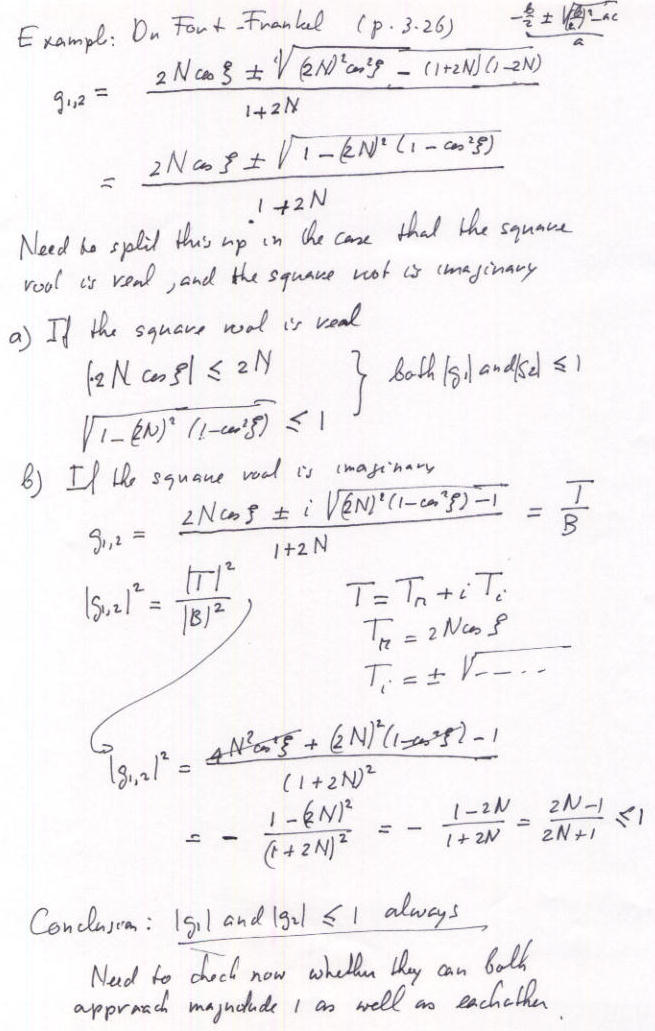 Example: Du Fort-Frankel (p. 3.26) (-b/2 ± √((b/2)² - ac)) / a
g₁,₂ = (2N cos ξ ± √((2N)² cos²ξ - (1+2N)(1-2N))) / (1+2N)
= (2N cos ξ ± √(1 - (2N)² (1 - cos²ξ))) / (1+2N)
Need to split this up in the case that the square
root is real, and the square root is imaginary
a) If the square root is real
|2N cos ξ| ≤ 2N } both |g₁| and |g₂| ≤ 1
√(1 - (2N)² (1-cos²ξ)) ≤ 1
b) If the square root is imaginary
g₁,₂ = (2N cos ξ ± i √((2N)² (1-cos²ξ) - 1)) / (1+2N) = T/B
|g₁,₂|² = |T|² / |B|² T = Tr + i Ti
Tr = 2N cos ξ
Ti = ± √-----
|g₁,₂|² = (4N² cos²ξ + (2N)² (1-cos²ξ) - 1) / (1+2N)²
= - (1-(2N)²) / (1+2N)² = - (1-2N) / (1+2N) = (2N-1) / (2N+1) ≤ 1
Conclusion: |g₁| and |g₂| ≤ 1 always
Need to check now whether they can both
approach magnitude 1 as well as eachother.